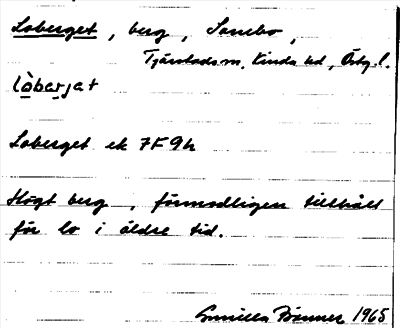 Loberget, berg, Sonebo,
Tjärstads sn, Kinda hd, Östg. l.
lòbærjat
Loberget ek 7F 9h
Högt berg, förmodligen tillhåll
för lo i äldre tid.
Gunilla Brunner 1965